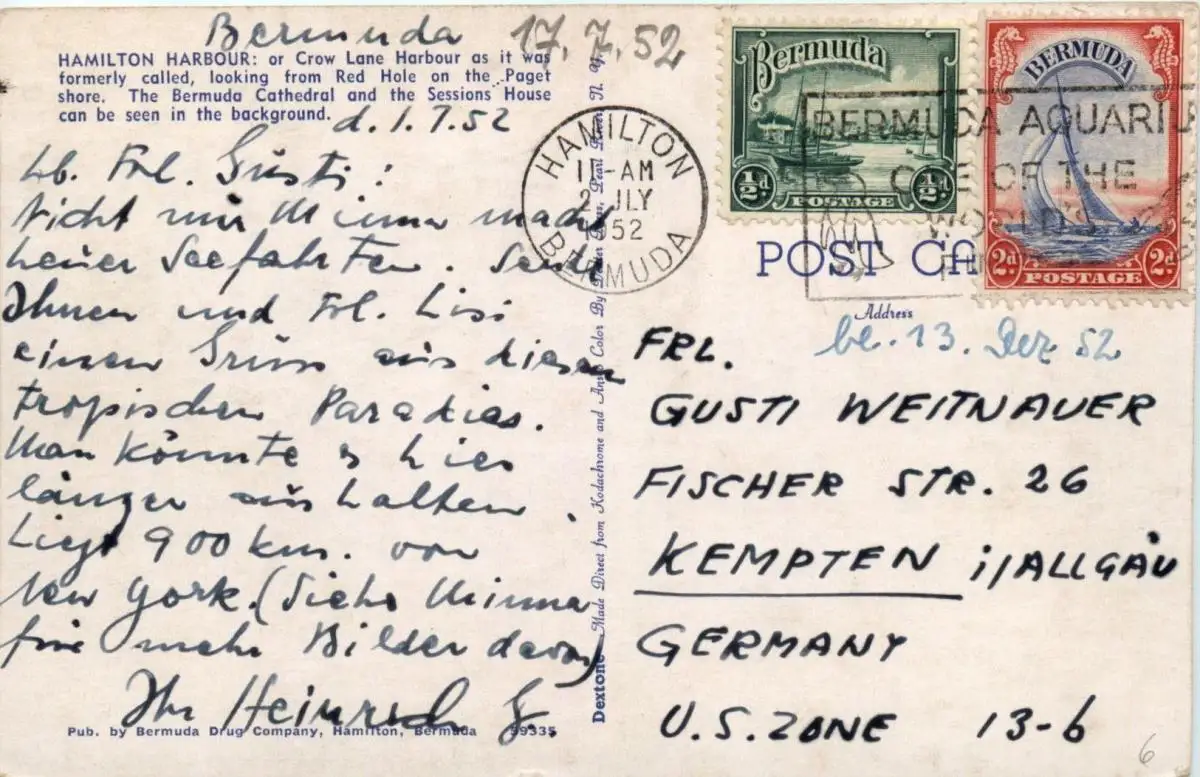 Bermuda 17.7.52
HAMILTON HARBOUR: or Crow Lane Harbour as it was
formerly called, looking from Red Hole on the Paget
shore. The Bermuda Cathedral and the Sessions House
can be seen in the background.
d. 1.7.52
Lb. Frl. Gusti:
Nicht nur Minna macht
heuer Seefahrten. Sende
Ihnen und Frl. Lisi
einen Gruss aus diesem
tropischen Paradies.
Man könnte s hier
länger aushalten.
Liegt 900 km. von
New York. (Siehe Minna
für mehr Bilder davon)
Ihr Heinrich G.
Pub. by Bermuda Drug Company, Hamilton, Bermuda 99335
Dextone Made Direct from Kodachrome and Ansco Color By
HAMILTON
11-AM
2 JLY
1952
BERMUDA
Bermuda
½d ½d
POSTAGE
BERMUDA
2d 2d
POSTAGE
BERMUDA AQUARIU
ONE OF THE
WORLD'S
POST CA
Address
be. 13. Dez 52
FRL.
GUSTI WEITNAUER
FISCHER STR. 26
KEMPTEN i/ALLGÄU
GERMANY
U.S. ZONE 13-6
6